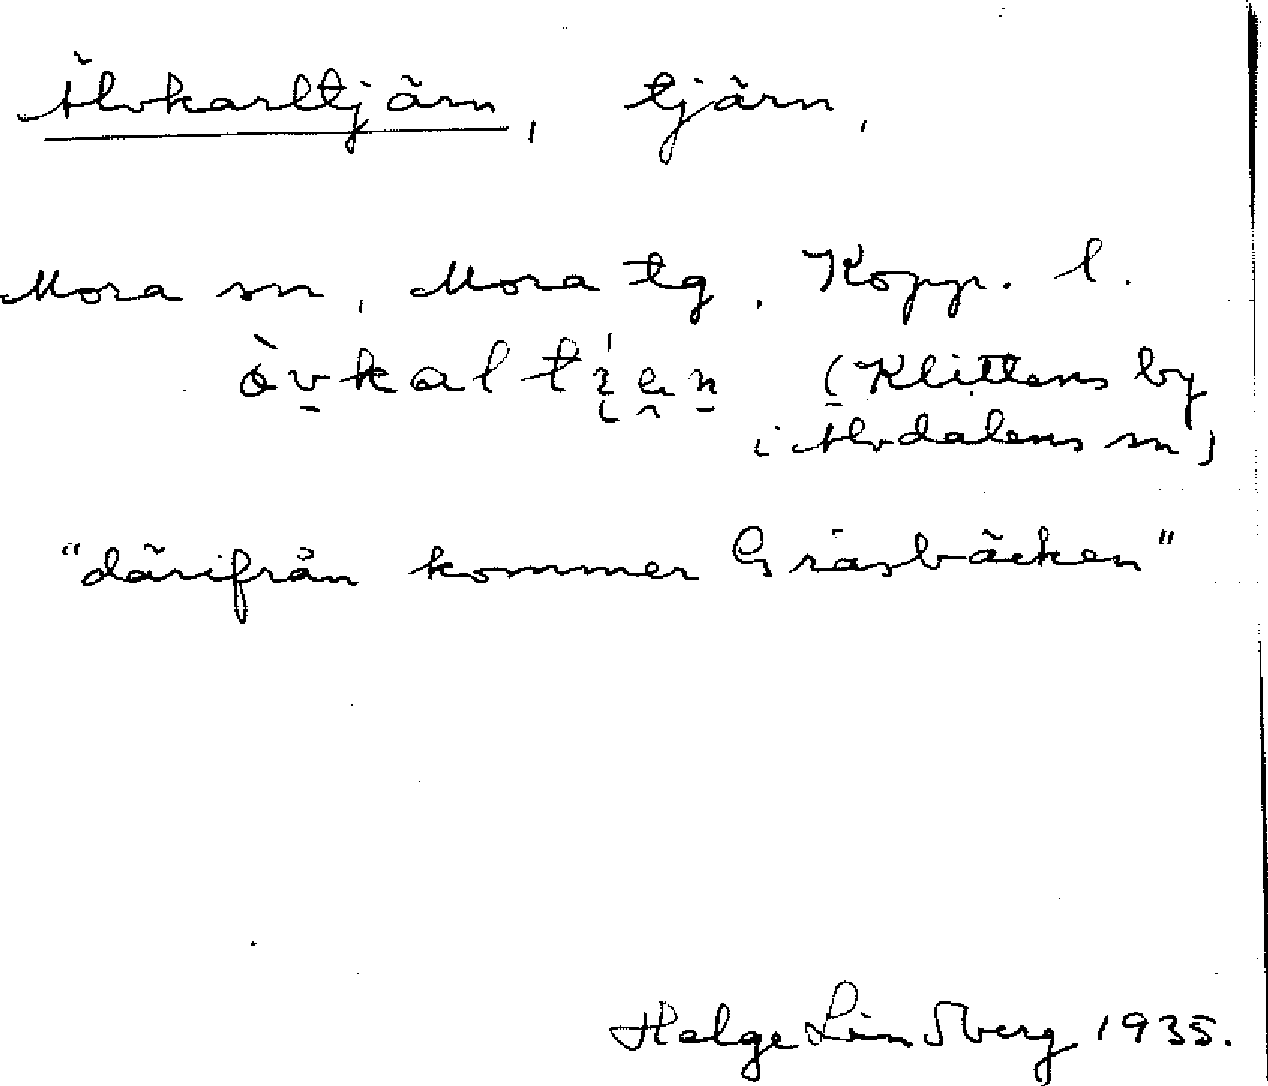 Älvkarltjärn, tjärn,
Mora sn, Mora tg. Kopp. l.
(Klittens by
i Älvdalens sn)
"därifrån kommer Gräsbäcken"
Helge Lindberg 1935.